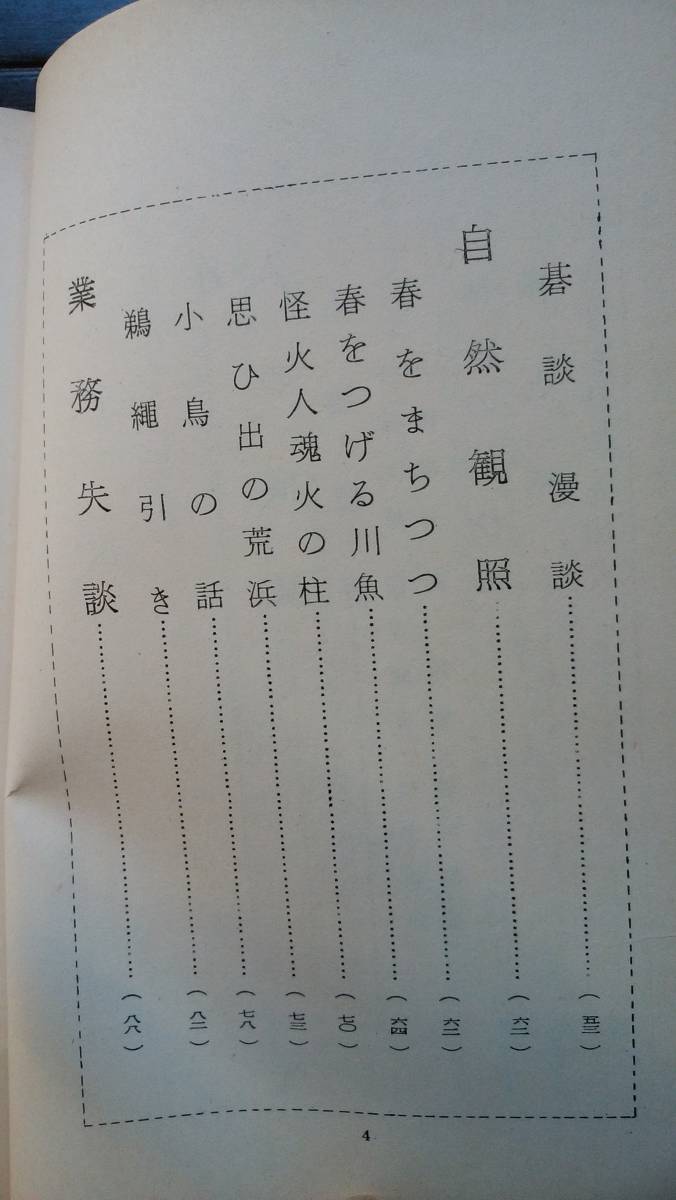 碁談漫談……(五三)
自然観照……(六二)
春をまちつつ……(六二)
春をつげる川魚……(六四)
怪火人魂火の柱……(七〇)
思ひ出の荒浜……(七三)
小鳥の話……(七八)
鵜繩引き……(八二)
業務失談……(八八)
4